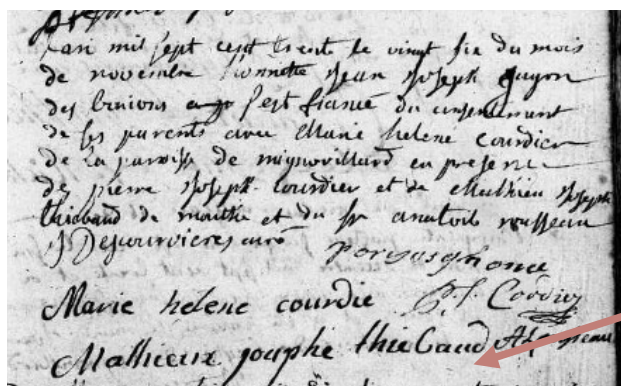 Lan mil sept cent trente le vingt six du mois
de novembre honnette Jean Joseph guyon
des bruions s'est fiancé du consentement
de ses parents avec Marie helene courdier
de la paroisse de mignovillard en presence
de pierre Joseph courdier et de Mathieu Joseph
thiebaud de mouthe et du sr anatoil rousseau
curé
Marie helene courdie
Mathieux jouphe thiebaud